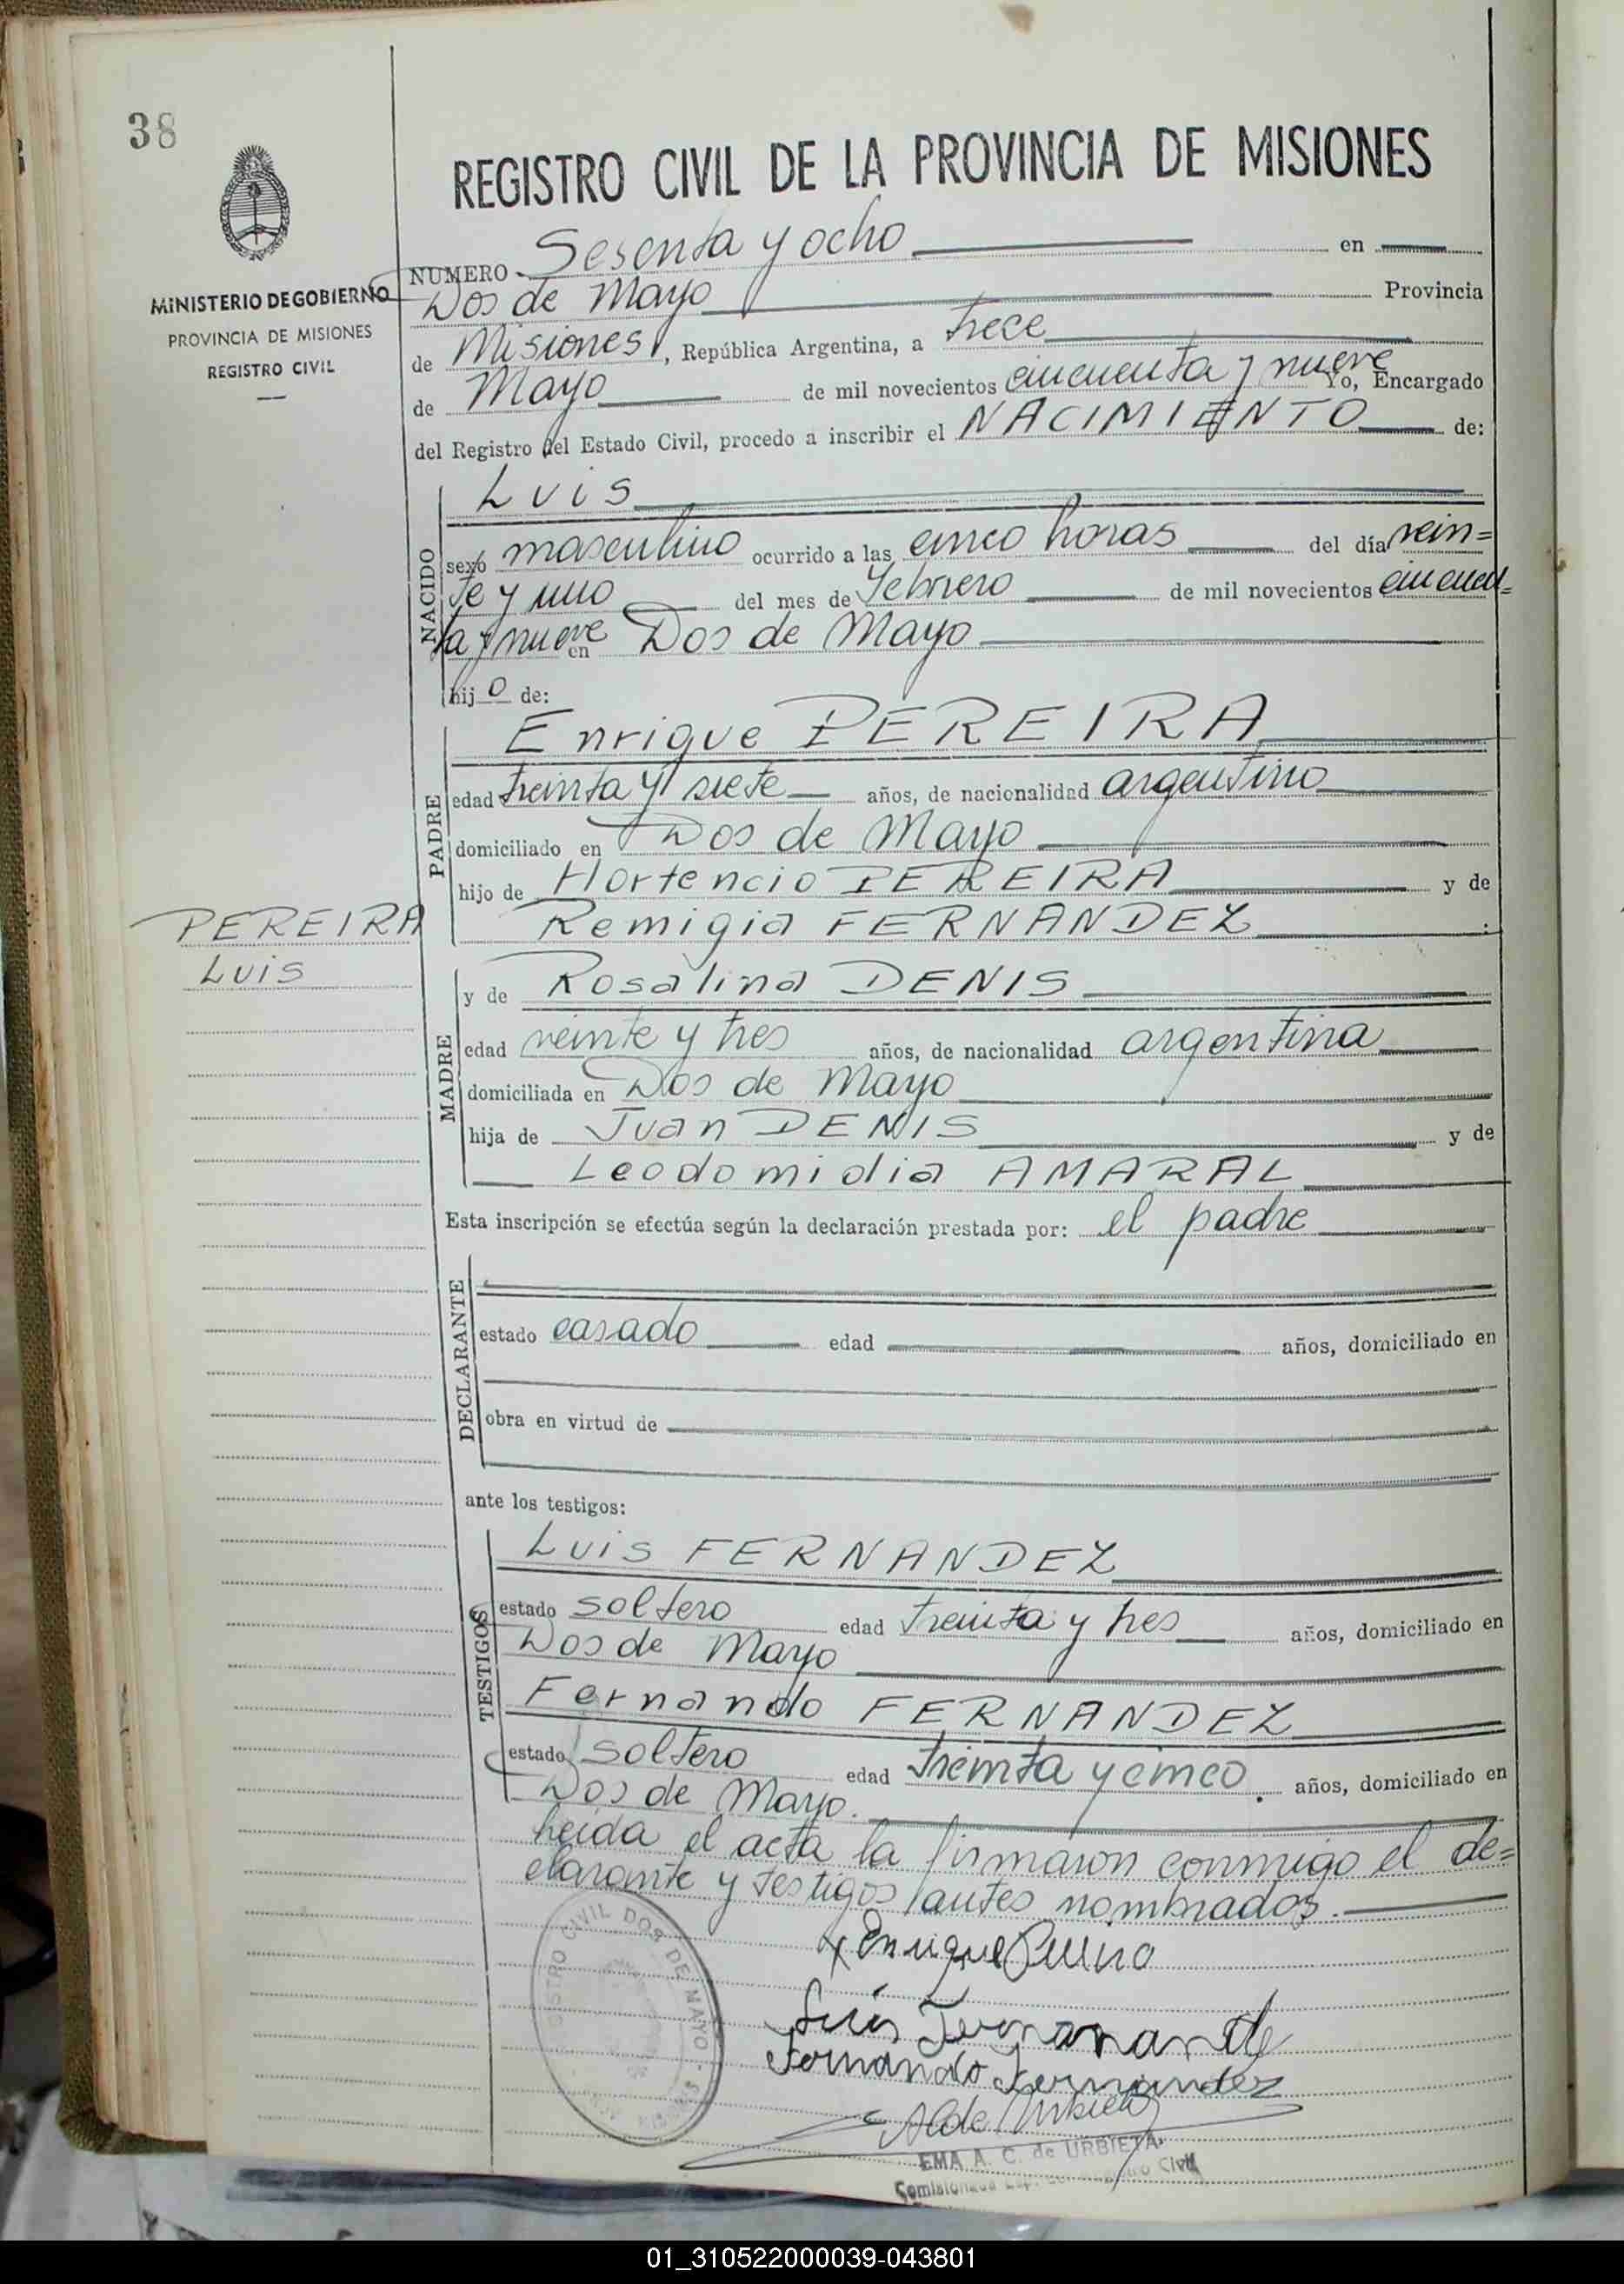 38
MINISTERIO DE GOBIERNO
PROVINCIA DE MISIONES
REGISTRO CIVIL
REGISTRO CIVIL DE LA PROVINCIA DE MISIONES
NUMERO Sesenta y ocho en
Dos de Mayo Provincia
de Misiones, República Argentina, a trece
de Mayo de mil novecientos cincuenta y nueve Yo, Encargado
del Registro del Estado Civil, procedo a inscribir el NACIMIENTO de:
NACIDO
Luis
sexo masculino ocurrido a las cinco horas del día vein=
te y uno del mes de Febrero de mil novecientos cincuen=
ta y nueve en Dos de Mayo
hijo de:
PADRE
Enrique PEREIRA
edad treinta y siete años, de nacionalidad argentino
domiciliado en Dos de Mayo
hijo de Hortencio PEREIRA y de
Remigia FERNANDEZ
PEREIRA
Luis
MADRE
y de Rosalina DENIS
edad veinte y tres años, de nacionalidad argentina
domiciliada en Dos de Mayo
hija de Juan DENIS y de
Leodomidia AMARAL
Esta inscripción se efectúa según la declaración prestada por: el padre
DECLARANTE
estado casado edad años, domiciliado en
obra en virtud de
ante los testigos:
TESTIGOS
Luis FERNANDEZ
estado soltero edad treinta y tres años, domiciliado en
Dos de Mayo
Fernando FERNANDEZ
estado soltero edad treinta y cinco años, domiciliado en
Dos de Mayo.
Leída el acta la firmaron conmigo el de=
clarante y testigos antes nombrados.
REGISTRO CIVIL DOS DE MAYO
x Enrique
Luis Fernande
Fernando Fernandez
EMA A. C. de URBIETA
Civil
01_310522000039-043801